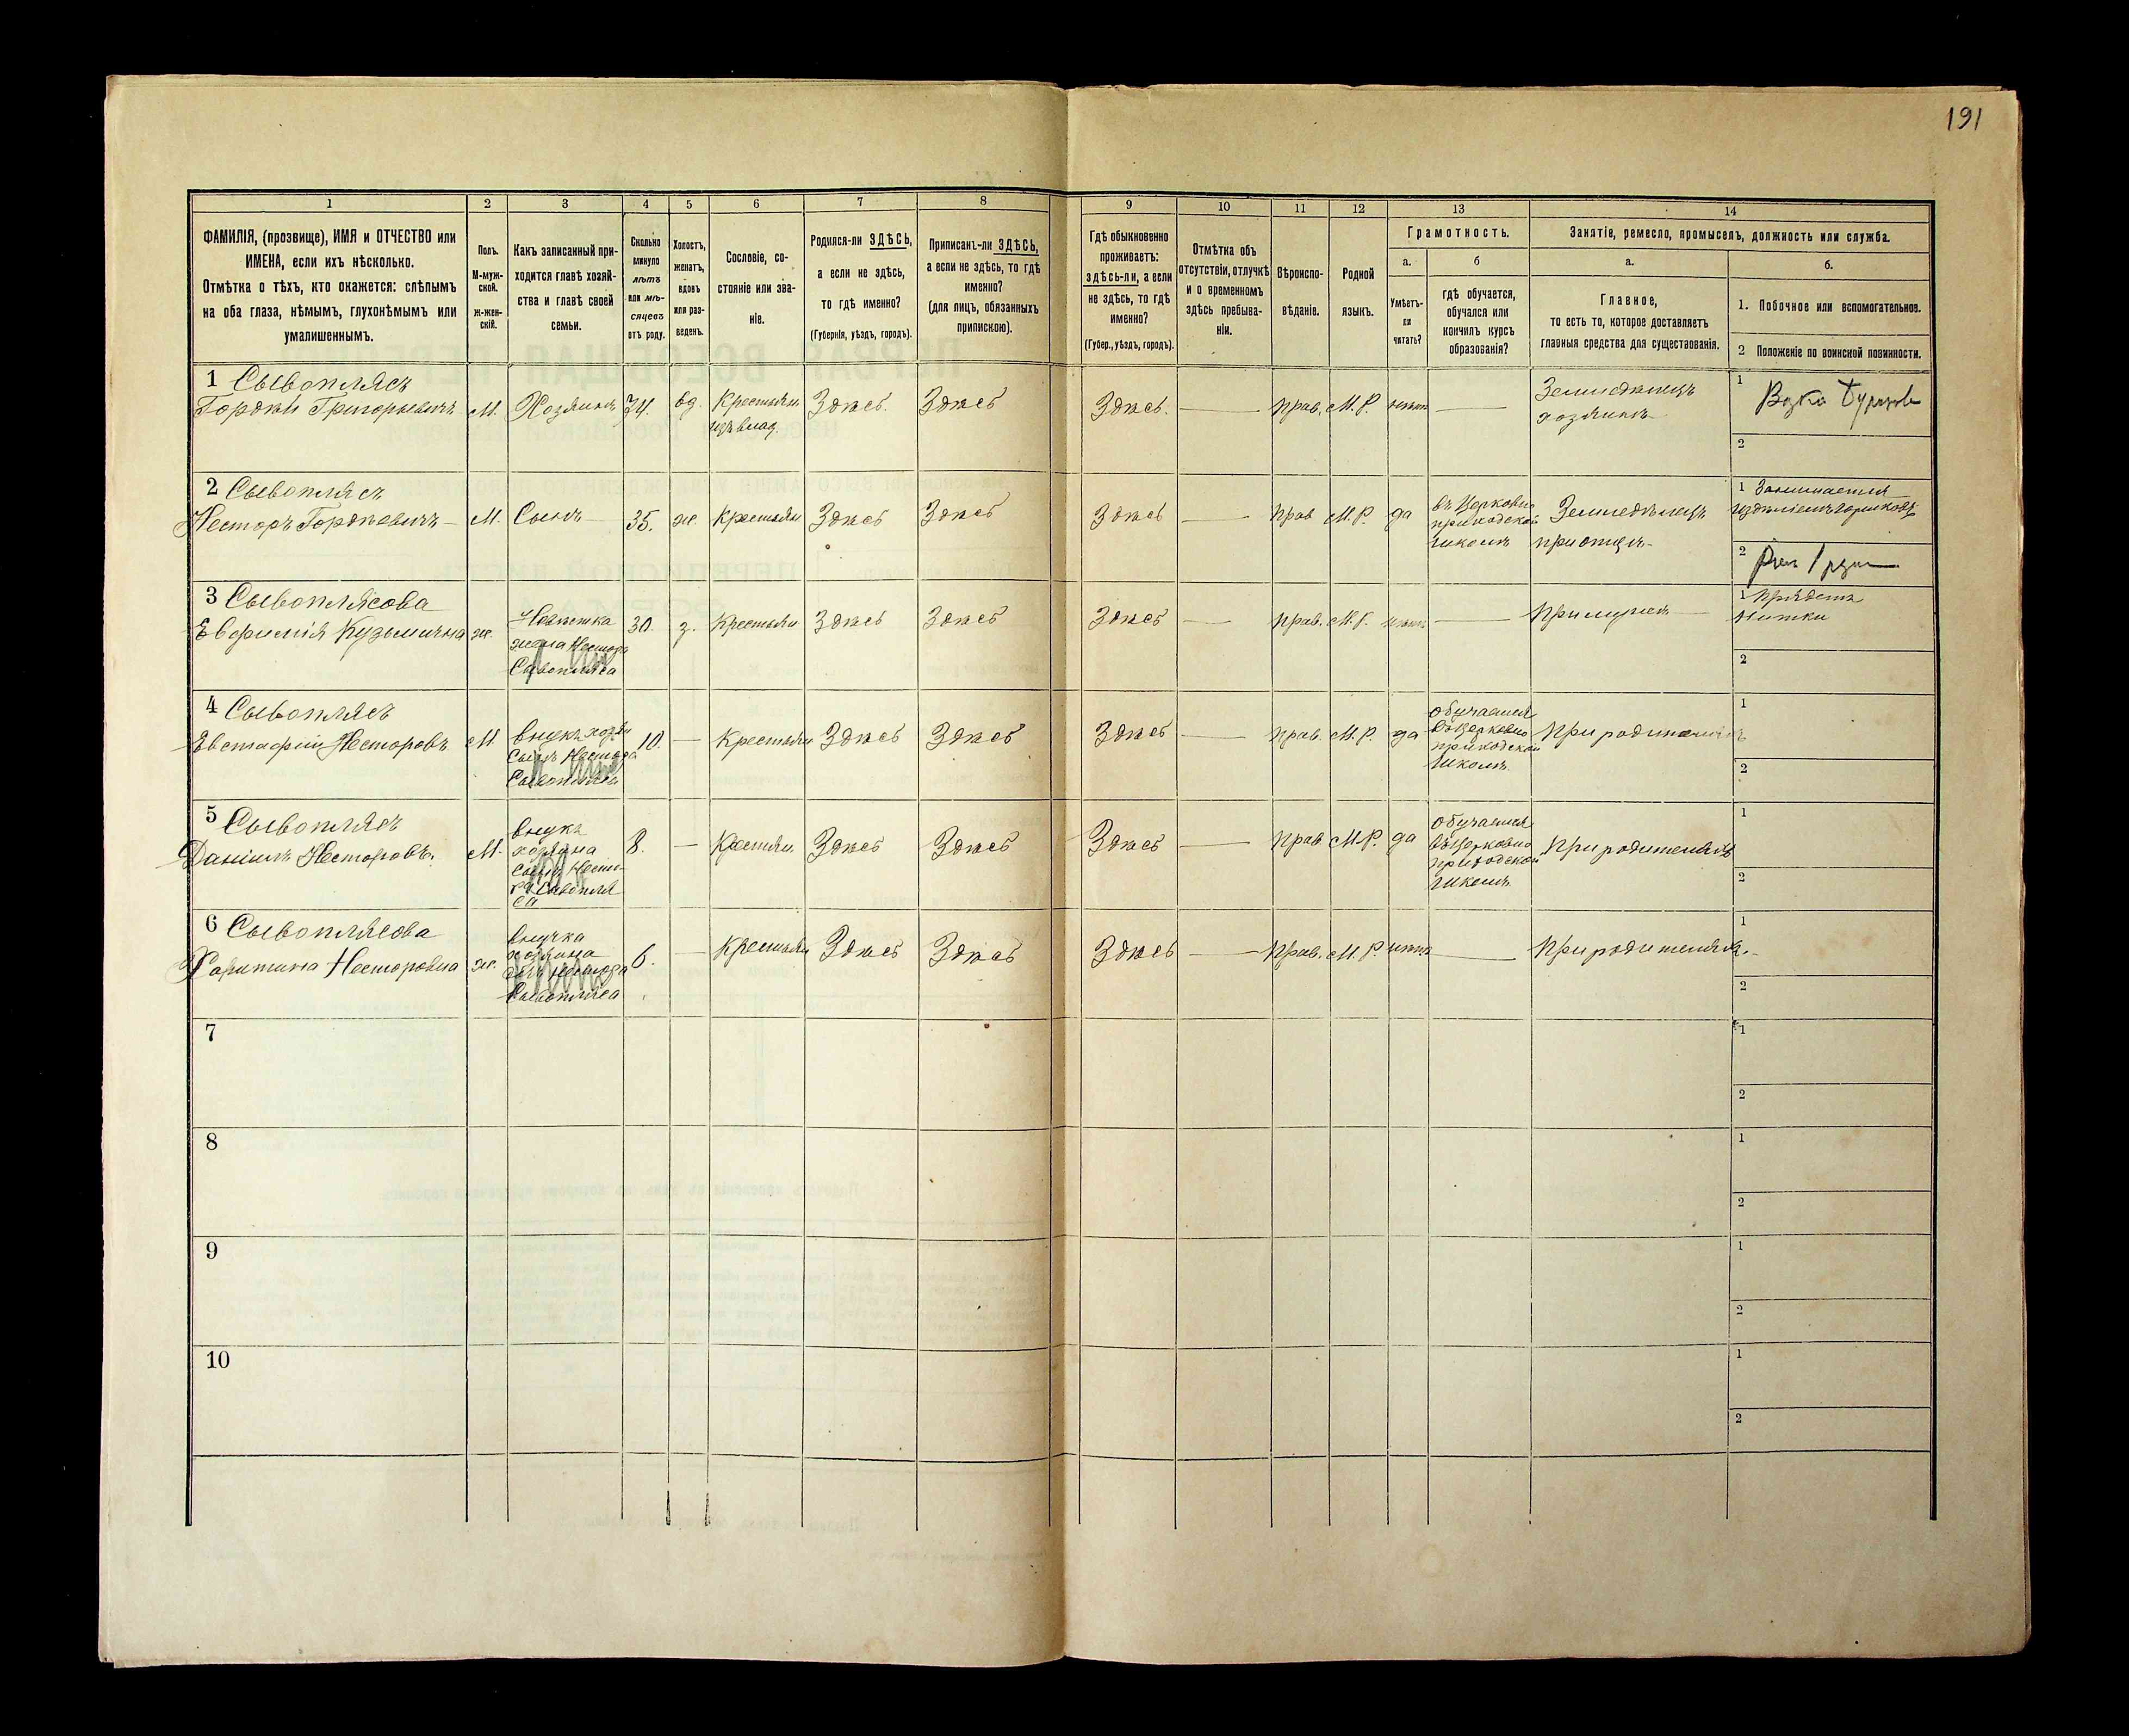 191
1
2
3
4
5
6
7
8
9
10
11
12
13
14
ФАМИЛІЯ, (прозвище), ИМЯ и ОТЧЕСТВО или
ИМЕНА, если ихъ нѣсколько.
Отмѣтка о тѣхъ, кто окажется: слѣпымъ
на оба глаза, нѣмымъ, глухонѣмымъ или
умалишеннымъ.
Полъ.
М-муж-
ской.
ж-жен-
скій.
Какъ записанный при-
ходится главѣ хозяй-
ства и главѣ своей
семьи.
Сколько
минуло
лѣтъ
или мѣ-
сяцевъ
отъ роду.
Холостъ,
женатъ,
вдовъ
или раз-
веденъ.
Сословіе, со-
стояніе или зва-
ніе.
Родился-ли ЗДѢСЬ,
а если не здѣсь,
то гдѣ именно?
(Губернія, уѣздъ, городъ).
Приписанъ-ли ЗДѢСЬ,
а если не здѣсь, то гдѣ
именно?
(для лицъ, обязанныхъ
припискою).
Гдѣ обыкновенно
проживаетъ:
здѣсь-ли, а если
не здѣсь, то гдѣ
именно?
(Губер., уѣздъ, городъ).
Отмѣтка объ
отсутствіи, отлучкѣ
и о временномъ
здѣсь пребыва-
ніи.
Вѣроиспо-
вѣданіе.
Родной
языкъ.
Грамотность.
а.
Умѣетъ-
ли
читать?
б
гдѣ обучается,
обучался или
кончилъ курсъ
образованія?
Занятіе, ремесло, промыселъ, должность или служба.
а.
Главное,
то есть то, которое доставляетъ
главныя средства для существованія.
б.
1. Побочное или вспомогательное.
2 Положеніе по воинской повинности.
1 Сывоплясъ
Гордѣй Григорьевичъ
М.
Хозяинъ
74.
вд.
Крестьян.
изъ влад.
Здѣсь.
Здѣсь
Здѣсь.
—
прав.
М. Р.
нѣтъ
—
Земледѣлецъ
хозяинъ
1
2
2 Сывоплясъ
Несторъ Гордѣевичъ
М.
Сынъ
35.
ж.
Крестьян
Здѣсь
Здѣсь
Здѣсь
—
прав
М. Р.
да
въ Церковно
приходской
школѣ
Земледѣлецъ
при отцѣ
1 Занимается
издѣліемъ горшковъ
2
3 Сывоплясова
Евфимія Кузьминична
ж.
Невѣстка
жена Нестора
Сывопляса
30.
з.
Крестьян
Здѣсь
Здѣсь
Здѣсь
—
прав.
М. Р.
нѣтъ
—
При мужѣ
1 Прядетъ
нитки
2
4 Сывоплясъ
Евстафій Несторовъ
М.
внукъ хозяи
Сынъ Нестора
Сывопляса
10.
—
Крестьян
Здѣсь
Здѣсь
Здѣсь
—
прав.
М. Р.
да
обучается
въ Церковно
приходской
школѣ.
При родителяхъ
1
2
5 Сывоплясъ
Даніилъ Несторовъ.
М.
внукъ
хозяина
сынъ Несто-
ра Сывопля
са
8.
—
Крестьян
Здѣсь
Здѣсь
Здѣсь
—
прав
М. Р.
да
обучается
въ Церковно
приходской
школѣ.
При родителяхъ
1
2
6 Сывоплясова
Харитина Несторовна
ж.
внучка
хозяина
дочь Нестора
Сывопляса
6.
—
Крестьян
Здѣсь
Здѣсь
Здѣсь
—
прав.
М. Р.
нѣтъ
—
При родителяхъ.
1
2
7
1
2
8
1
2
9
1
2
10
1
2